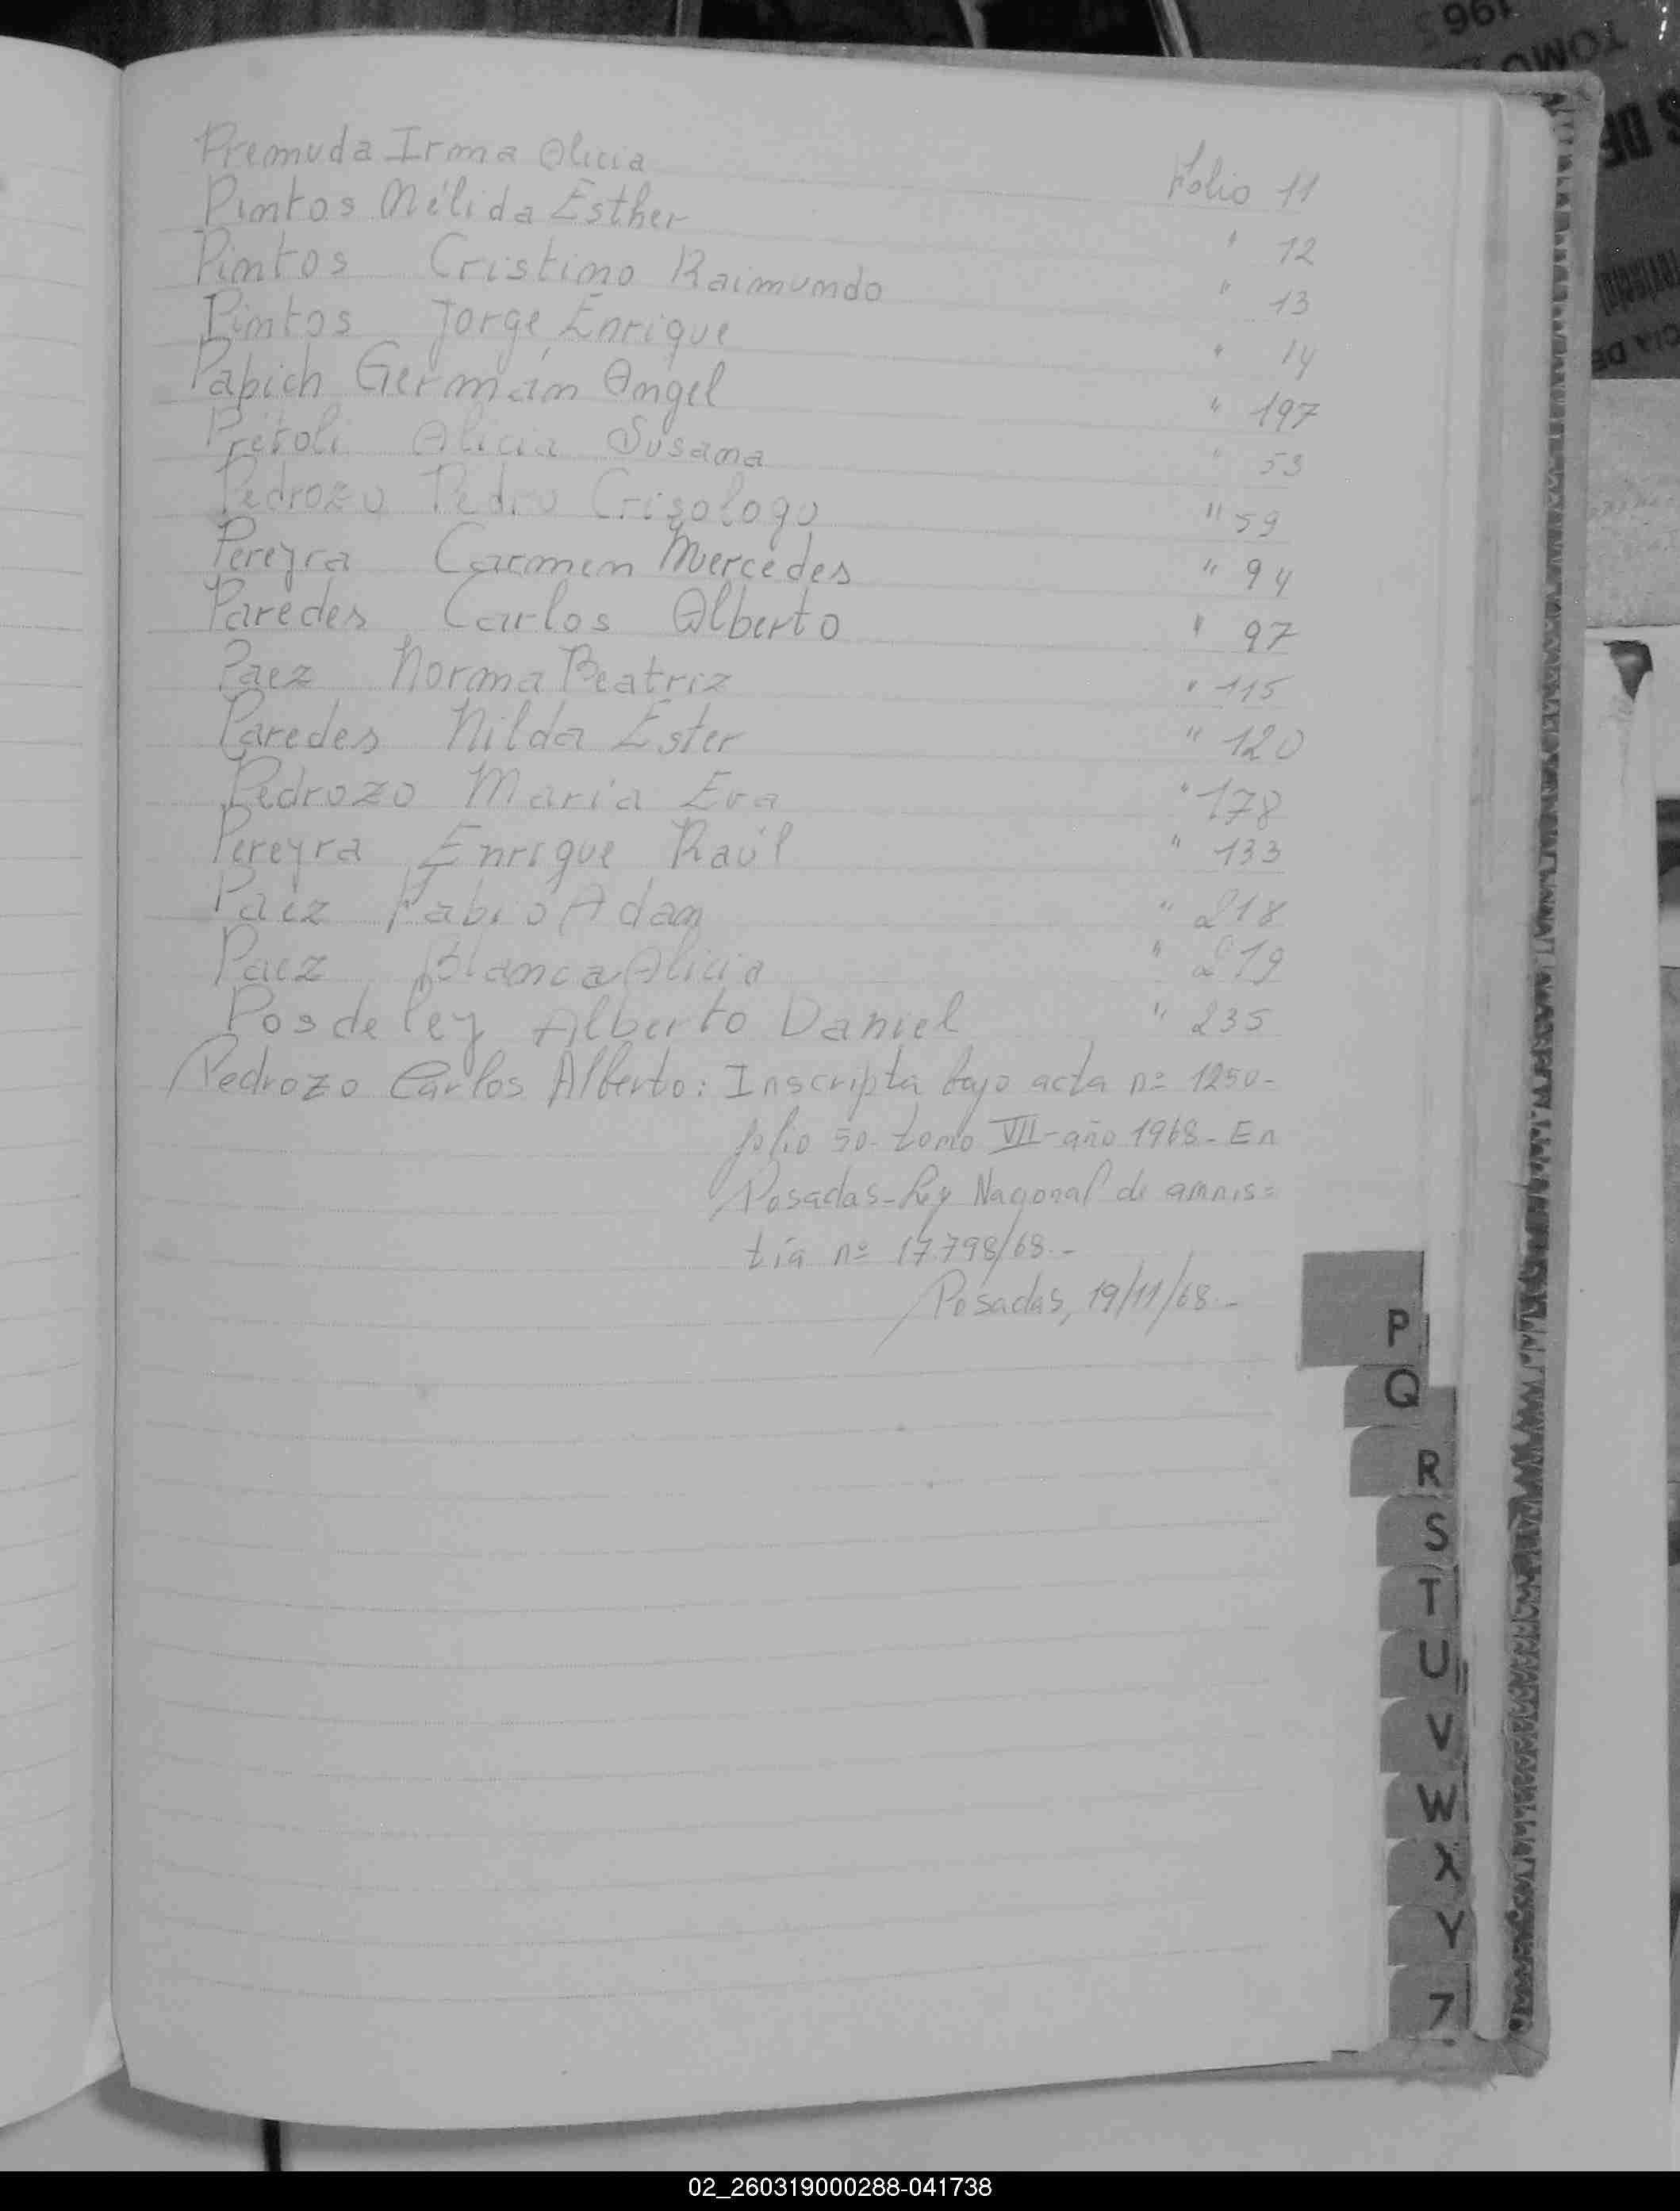 Premuda Irma Alicia Folio 11
Pintos Nélida Esther " 12
Pintos Cristino Raimundo " 13
Pintos Jorge Enrique " 14
Papich Germán Angel " 197
Prétoli Alicia Susana " 53
Pedrozo Pedro Crisologo " 59
Pereyra Carmen Mercedes " 94
Paredes Carlos Alberto " 97
Paez Norma Beatriz " 115
Paredes Nilda Ester " 120
Pedrozo Maria Eva " 178
Pereyra Enrique Raúl " 133
Paiz Fabio Adan " 218
Paez Blanca Alicia " 219
Posdeley Alberto Daniel " 235
Pedrozo Carlos Alberto: Inscripta bajo acta nº 1250-
folio 50- tomo VII- año 1968- En
Posadas- Ley Nacional de amnis=
tía nº 17.798/68.-
Posadas, 19/11/68.-
P
Q
R
S
T
U
V
W
X
Y
Z
TOMO
DE
02_260319000288-041738